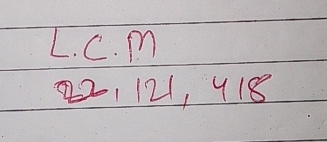 L.C.M
22, 121, 418